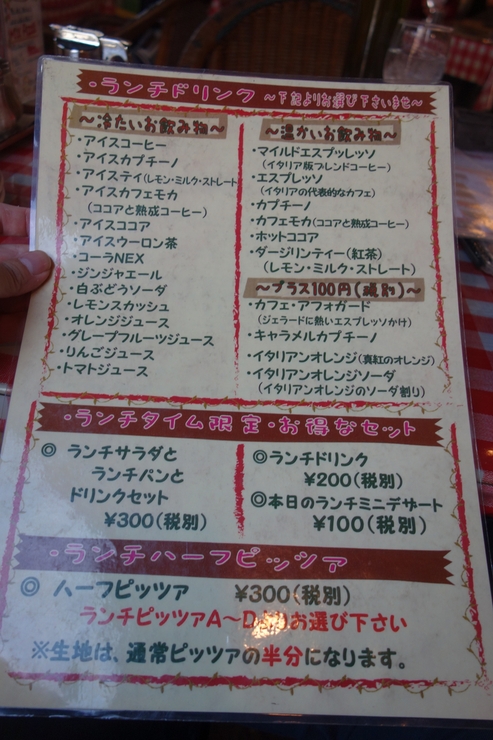 ・ランチドリンク ～下記よりお選び下さいませ～
～冷たいお飲み物～
・アイスコーヒー
・アイスカプチーノ
・アイスティ(レモン・ミルク・ストレート
・アイスカフェモカ
(ココアと熟成コーヒー)
・アイスココア
・アイスウーロン茶
・コーラNEX
・ジンジャエール
・白ぶどうソーダ
・レモンスカッシュ
・オレンジジュース
・グレープフルーツジュース
・りんごジュース
・トマトジュース
～温かいお飲み物～
・マイルドエスプッレッソ
(イタリア版ブレンドコーヒー)
・エスプレッソ
(イタリアの代表的なカフェ)
・カプチーノ
・カフェモカ(ココアと熟成コーヒー)
・ホットココア
・ダージリンティー(紅茶)
(レモン・ミルク・ストレート)
～プラス100円(税別)～
・カフェ・アフォガード
(ジェラードに熱いエスプレッソかけ)
・キャラメルカプチーノ
・イタリアンオレンジ(真紅のオレンジ)
・イタリアンオレンジソーダ
(イタリアンオレンジのソーダ割り)
・ランチタイム限定・お得なセット
◎ランチサラダと
ランチパンと
ドリンクセット
¥300(税別)
◎ランチドリンク
¥200(税別)
◎本日のランチミニデザート
¥100(税別)
・ランチハーフピッツァ
◎ ハーフピッツァ ¥300(税別)
ランチピッツァA～Dよりお選び下さい
※生地は、通常ピッツァの半分になります。